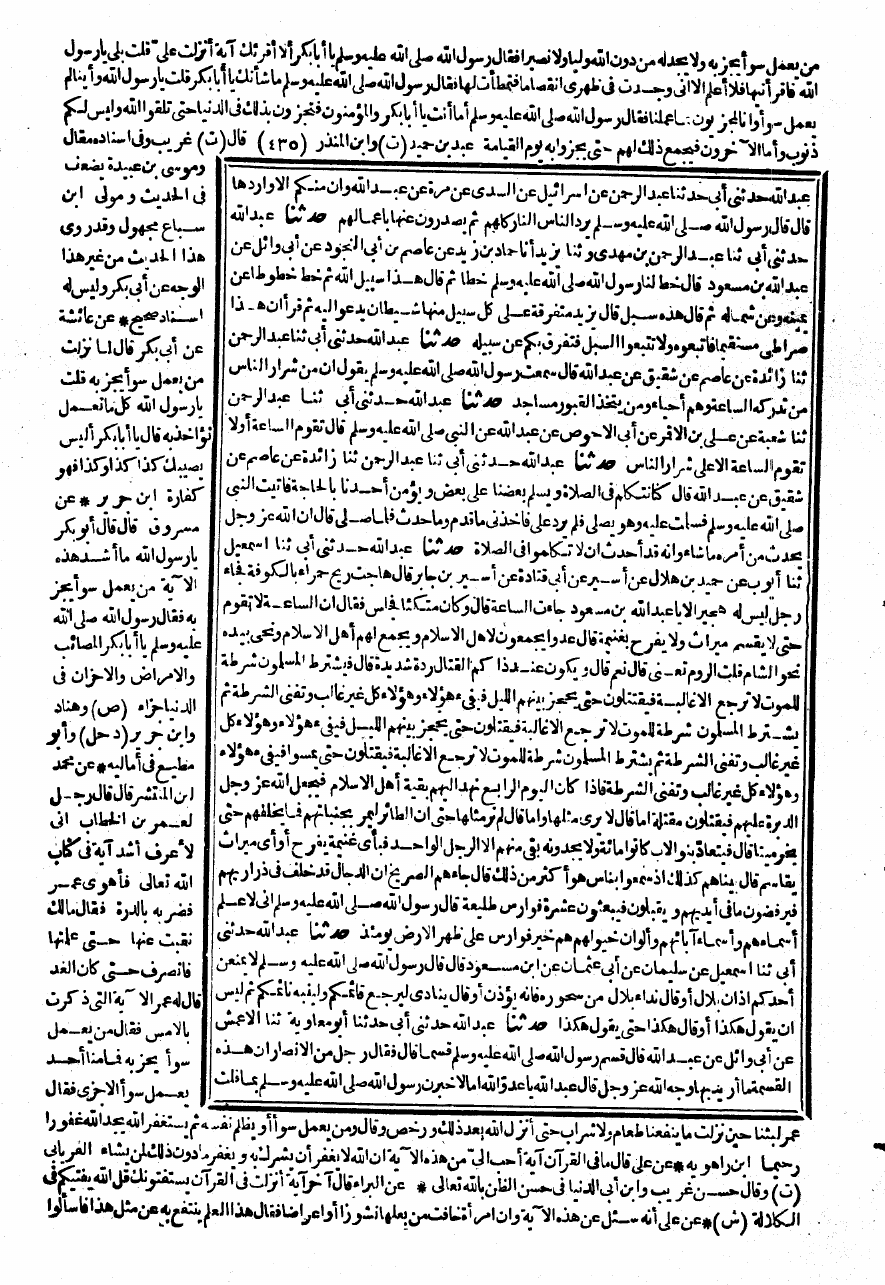 من يعمل سوأ يجز به ولا يجد له من دون الله وليا ولا نصيرا فقال رسول الله صلى الله عليه وسلم يا أبا بكر ألا أقرئك آية أنزلت على قلت بلى يا رسول
الله فاقرأنيها فلا أعلم الا انى وجدت فى ظهرى انقصاما فتمطأت لها فقال رسول الله صلى الله عليه وسلم ما شأنك يا أبا بكر قلت يا رسول الله وأينا لم
يعمل سوأ وانا لمجزيون بما عملنا فقال رسول الله صلى الله عليه وسلم أما أنت يا أبا بكر والمؤمنون فتجزون بذلك فى الدنيا حتى تلقوا الله وليس لكم
ذنوب وأما الآخرون فيجمع ذلك لهم حتى يجزوا به يوم القيامة عبد بن حميد (ت) وابن المنذر (٤٣٥) قال (ت) غريب وفى اسناده مقال
وموسى بن عبيدة يضعف
فى الحديث ومولى ابن
سباع مجهول وقد روى
هذا الحديث من غير هذا
الوجه عن أبى بكر وليس له
اسناد صحيح * عن عائشة
عن أبى بكر قال لما نزلت
من يعمل سوأ يجز به قلت
يا رسول الله كل ما نعمل
نؤاخذ به قال يا أبا بكر أليس
يصيبك كذا كذا وكذا فهو
كفارة ابن جرير * عن
مسروق قال قال أبو بكر
يا رسول الله ما أشد هذه
الآية من يعمل سوأ يجز
به فقال رسول الله صلى الله
عليه وسلم يا أبا بكر المصائب
والامراض والاحزان فى
الدنيا جزاء (ص) وهناد
وابن جرير (د حل) وأبو
مطيع فى أماليه * عن محمد
ابن المنتشر قال قال رجل
لعمر بن الخطاب انى
لأعرف أشد آية فى كتاب
الله تعالى فأهوى عمر
فضربه بالدرة فقال مالك
نقبت عنها حتى علمتها
فانصرف حتى كان الغد
قال له عمر الآية التى ذكرت
بالامس فقال من يعمل
سوأ يجز به فما منا أحد
يعمل سوأ الا جزى فقال
عبد الله حدثنى أبى حدثنا عبد الرحمن عن اسرائيل عن السدى عن مرة عن عبد الله وان منكم الا واردها
قال قال رسول الله صلى الله عليه وسلم يرد الناس النار كلهم ثم يصدرون عنها باعمالهم حدثنا عبد الله
حدثنى أبى ثنا عبد الرحمن بن مهدى وثنا يزيد أنا حماد بن زيد عن عاصم بن أبى النجود عن أبى وائل عن
عبد الله بن مسعود قال خط لنا رسول الله صلى الله عليه وسلم خطا ثم قال هذا سبيل الله ثم خط خطوطا عن
يمينه وعن شماله ثم قال هذه سبل قال يزيد متفرقة على كل سبيل منها شيطان يدعو اليه ثم قرأ ان هذا
صراطى مستقيما فاتبعوه ولا تتبعوا السبل فتفرق بكم عن سبيله حدثنا عبد الله حدثنى أبى ثنا عبد الرحمن
ثنا زائدة عن عاصم عن شقيق عن عبد الله قال سمعت رسول الله صلى الله عليه وسلم يقول ان من شرار الناس
من تدركه الساعة وهم أحياء ومن يتخذ القبور مساجد حدثنا عبد الله حدثنى أبى ثنا عبد الرحمن
ثنا شعبة عن على بن الاقمر عن أبى الاحوص عن عبد الله عن النبى صلى الله عليه وسلم قال تقوم الساعة أو لا
تقوم الساعة الا على شرار الناس حدثنا عبد الله حدثنى أبى ثنا عبد الرحمن ثنا زائدة عن عاصم عن
شقيق عن عبد الله قال كنا نتكلم فى الصلاة ويسلم بعضنا على بعض ويؤمن أحدنا بالحاجة فاتيت النبى
صلى الله عليه وسلم فسلمت عليه وهو يصلى فلم يرد على فاخذنى ما قدم وما حدث فلما صلى قال ان الله عز وجل
يحدث من أمره ما شاء وانه قد أحدث ان لا تكلموا فى الصلاة حدثنا عبد الله حدثنى أبى ثنا اسمعيل
ثنا أيوب عن حميد بن هلال عن أبى قتادة عن أسير بن جابر قال هاجت ريح حمراء بالكوفة فجاء
رجل ليس له هجير الا يا عبد الله بن مسعود جاءت الساعة قال وكان متكئا فجلس فقال ان الساعة لا تقوم
حتى لا يقسم ميراث ولا يفرح بغنيمة قال عدوا يجمعون لاهل الاسلام ويجمع لهم أهل الاسلام ونحى بيده
نحو الشام قلت الروم تعنى قال نعم قال ويكون عند ذا كم القتال ردة شديدة قال فيشترط المسلمون شرطة
للموت لا ترجع الا غالبة فيقتتلون حتى يحجز بينهم الليل فيفىء هؤلاء وهؤلاء كل غير غالب وتفنى الشرطة ثم
يشترط المسلمون شرطة للموت لا ترجع الا غالبة فيقتتلون حتى يحجز بينهم الليل فيفىء هؤلاء وهؤلاء كل
غير غالب وتفنى الشرطة ثم يشترط المسلمون شرطة للموت لا ترجع الا غالبة فيقتتلون حتى يمسوا فيفىء هؤلاء
وهؤلاء كل غير غالب وتفنى الشرطة فاذا كان اليوم الرابع نهد اليهم بقية أهل الاسلام فيجعل الله عز وجل
الدبرة عليهم فيقتتلون مقتلة اما قال لا يرى مثلها واما قال لم نر مثلها حتى ان الطائر ليمر بجنباتهم فما يخلفهم حتى
يخر ميتا قال فيتعاد بنو الاب كانوا مائة ولا يجدونه بقى منهم الا الرجل الواحد فبأى غنيمة يفرح أو أى ميراث
يقاسم قال بينا هم كذلك اذ سمعوا بناس هو أكثر من ذلك قال جاءهم الصريخ ان الدجال قد خلف فى ذراريهم
فيرفضون ما فى أيديهم ويقبلون فيبعثون عشرة فوارس طليعة قال رسول الله صلى الله عليه وسلم انى لاعلم
أسماءهم وأسماء آبائهم وألوان خيولهم هم خير فوارس على ظهر الارض يومئذ حدثنا عبد الله حدثنى
أبى ثنا اسمعيل عن سليمان عن أبى عثمان عن ابن مسعود قال قال رسول الله صلى الله عليه وسلم لا يمنعن
أحدكم اذان بلال أو قال نداء بلال من سحوره فانه يؤذن أو قال ينادى ليرجع قائمكم ولينبه نائمكم ثم ليس
ان يقول هكذا أو قال هكذا حتى يقول هكذا حدثنا عبد الله حدثنى أبى حدثنا أبو معاوية ثنا الاعمش
عن أبى وائل عن عبد الله قال قسم رسول الله صلى الله عليه وسلم قسما قال فقال رجل من الانصار ان هذه
القسمة ما أريد بها وجه الله عز وجل قال عبد الله يا عدو الله اما لاخبرن رسول الله صلى الله عليه وسلم بما قلت
عمر لبثنا حين نزلت ما ينفعنا طعام ولا شراب حتى أنزل الله بعد ذلك ورخص وقال ومن يعمل سوأ أو يظلم نفسه ثم يستغفر الله يجد الله غفورا
رحيما ابن راهويه * عن على قال ما فى القرآن آية أحب الى من هذه الآية ان الله لا يغفر أن يشرك به ويغفر ما دون ذلك لمن يشاء الفريابى
(ت) وقال حسن غريب وابن أبى الدنيا فى حسن الظن بالله تعالى * عن البراء قال آخر آية أنزلت فى القرآن يستفتونك قل الله يفتيكم فى
الكلالة (ش) * عن على أنه سئل عن هذه الآية وان امرأة خافت من بعلها نشوزا أو اعراضا فقال هذا العلم ينتفع به عن مثل هذا فاسألوا